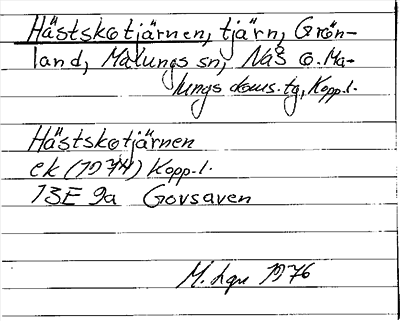 Hästskotjärnen, tjärn, Grön-
land, Malungs sn, Nås o. Ma-
lungs doms.tg, Kopp.l.
Hästskotjärnen
ek (1974) Kopp.l.
13E 9a Govsaven
M. 1976